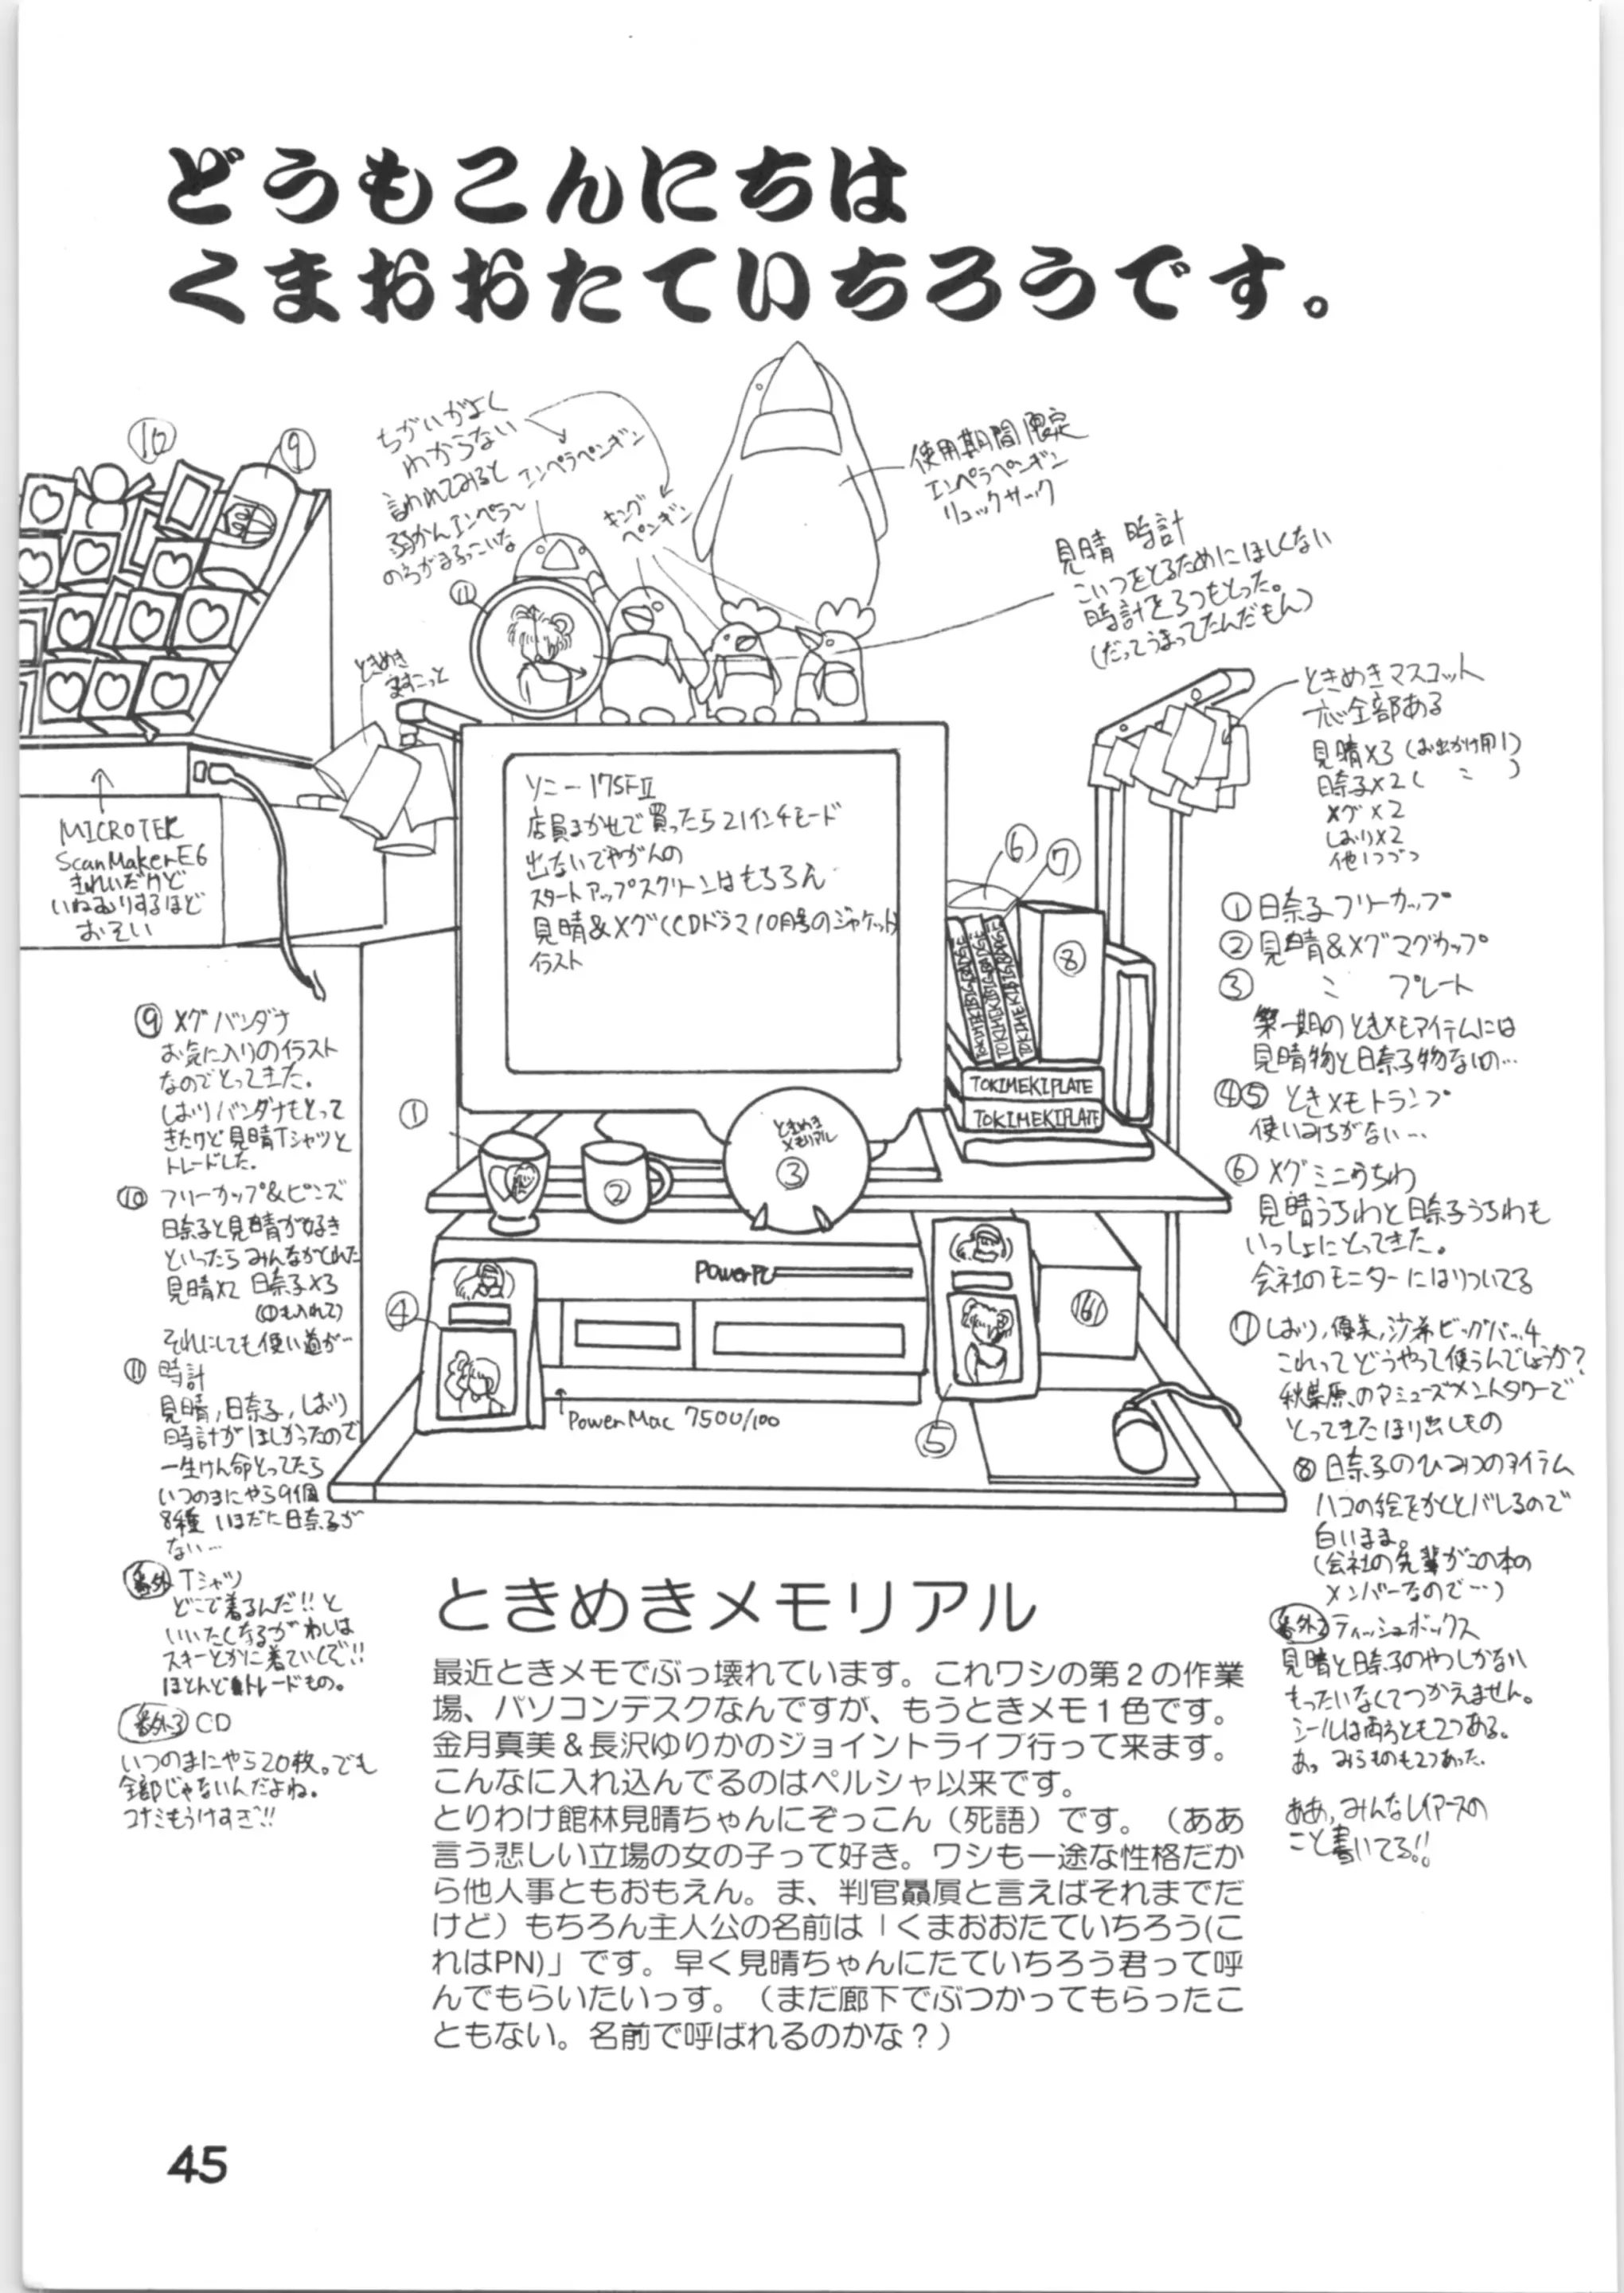 どうもこんにちは
くまおおたていちろうです。
⑩
⑨
ちがいがよく
わからない
言われてみると
若かんエンペラー
のろがまるっこいな
エンペラペンギン
キング
ペンギン
使用期間限定
エンペラペンギン
リュックサック
見晴 時計
こいつをとるためにほしくない
時計を3つもとった。
(だってうまってたんだもん)
⑪
ときめき
ますこっと
ときめきマスコット
六心全部ある
見晴×3(お出かけ用1)
日奈子×2(〃)
メグ×2
しおり×2
他1つづつ
MICROTEK
ScanMakerE6
きれいだけど
いねむりするほど
おそい
ソニー17SFⅡ
店員まかせで買ったら21インチモード
出ないでやがんの
スタートアップスクリーンはもちろん
見晴&メグ(CDドラマ10月号のジャケット)
イラスト
⑥
⑦
⑧
TOKIMEKIBIGBADGE
TOKIMEKIBIGBADGE
TOKIMEKIBIGBADGE
TOKIMEKIPLATE
TOKIMEKIPLATE
①
②
ときめき
メモリアル
③
PowerPC
④
⑤
PowerMac 7500/100
①日奈子フリーカップ
②見晴&メグマグカップ
③ 〃 プレート
第一期のときメモアイテムには
見晴物と日奈子物ないの…
④⑤ ときメモトランプ
使いみちがない…
⑥ メグミニうちわ
見晴うちわと日奈子うちわも
いっしょにとってきた。
会社のモニターにはりついてる
⑦しおり,優美,沙希ビッグバッチ
これってどうやって使うんでしょうか?
秋葉原のアミューズメントタワーで
とってきたほり出しもの
⑧日奈子のひみつのアイテム
ハコの絵をかくとバレるので
白いまま。
(会社の先輩がこの本の
メンバーなので…)
番外2 ティッシュボックス
見晴と日奈子のやつしかない
もったいなくてつかえません。
シールは両方とも2つある。
あっ みらものも2つあった。
ああ,みんなレイアースの
こと書いてる!!
⑨ メグバンダナ
お気に入りのイラスト
なのでとってきた。
しおりバンダナもとって
きたけど見晴Tシャツと
トレードした。
⑩ フリーカップ&ピンズ
日奈子と見晴が好き
といったらみんながくれた
見晴×2 日奈子×3
(①も入れて)
それにしても使い道が…
⑪ 時計
見晴,日奈子,しおり
時計がほしかったので
一生けん命とってたら
いつのまにやら9個
8種 いまだに日奈子が
ない…
番外 Tシャツ
どこで着るんだ!!と
いいたくなるがわしは
スキーとかに着ていくで!!
ほとんどトレードもの。
番外3 CD
いつのまにやら20枚。でも
全部じゃないんだよね。
コナミもうけすぎ!!
ときめきメモリアル
最近ときメモでぶっ壊れています。これワシの第2の作業
場、パソコンデスクなんですが、もうときメモ1色です。
金月真美&長沢ゆりかのジョイントライブ行って来ます。
こんなに入れ込んでるのはペルシャ以来です。
とりわけ館林見晴ちゃんにぞっこん(死語)です。(ああ
言う悲しい立場の女の子って好き。ワシも一途な性格だか
ら他人事ともおもえん。ま、判官贔屓と言えばそれまでだ
けど)もちろん主人公の名前は「くまおおたていちろう(こ
れはPN)」です。早く見晴ちゃんにたていちろう君って呼
んでもらいたいっす。(まだ廊下でぶつかってもらったこ
ともない。名前で呼ばれるのかな?)
45